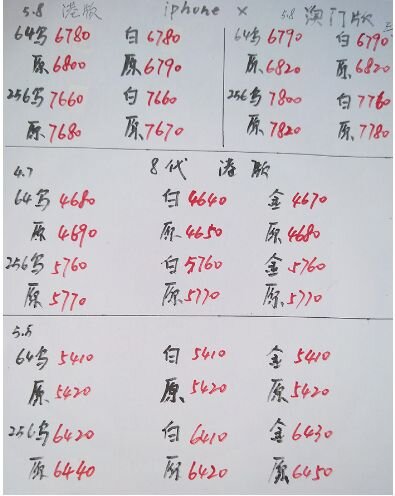 5.8 港版 iphone x 5.8 澳门版
64乌 6780 白 6780 64乌 6790 白 6790
原 6800 原 6790 原 6820 原 6820
256乌 7660 白 7660 256乌 7800 白 7760
原 7680 原 7670 原 7820 原 7780
4.7 8代 港版
64乌 4680 白 4640 金 4670
原 4690 原 4650 原 4680
256乌 5760 白 5760 金 5760
原 5770 原 5770 原 5770
5.5
64乌 5410 白 5410 金 5410
原 5420 原 5420 原 5420
256乌 6420 白 6410 金 6430
原 6440 原 6420 原 6450